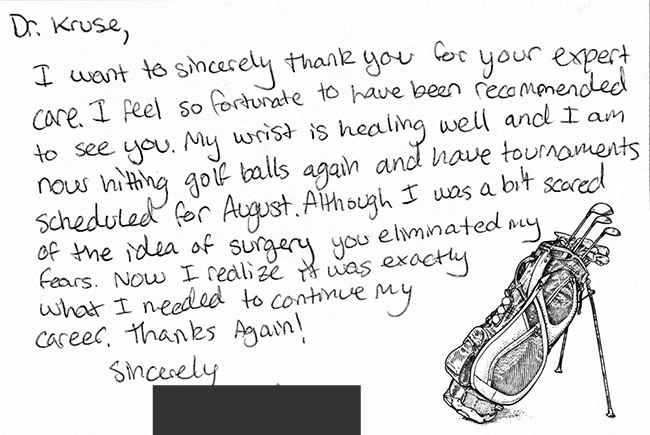 Dr. Kruse,
I want to sincerely thank you for your expert
care. I feel so fortunate to have been recommended
to see you. My wrist is healing well and I am
now hitting golf balls again and have tournaments
scheduled for August. Although I was a bit scared
of the idea of surgery you eliminated my
fears. Now I realize it was exactly
what I needed to continue my
career. Thanks Again!
Sincerely